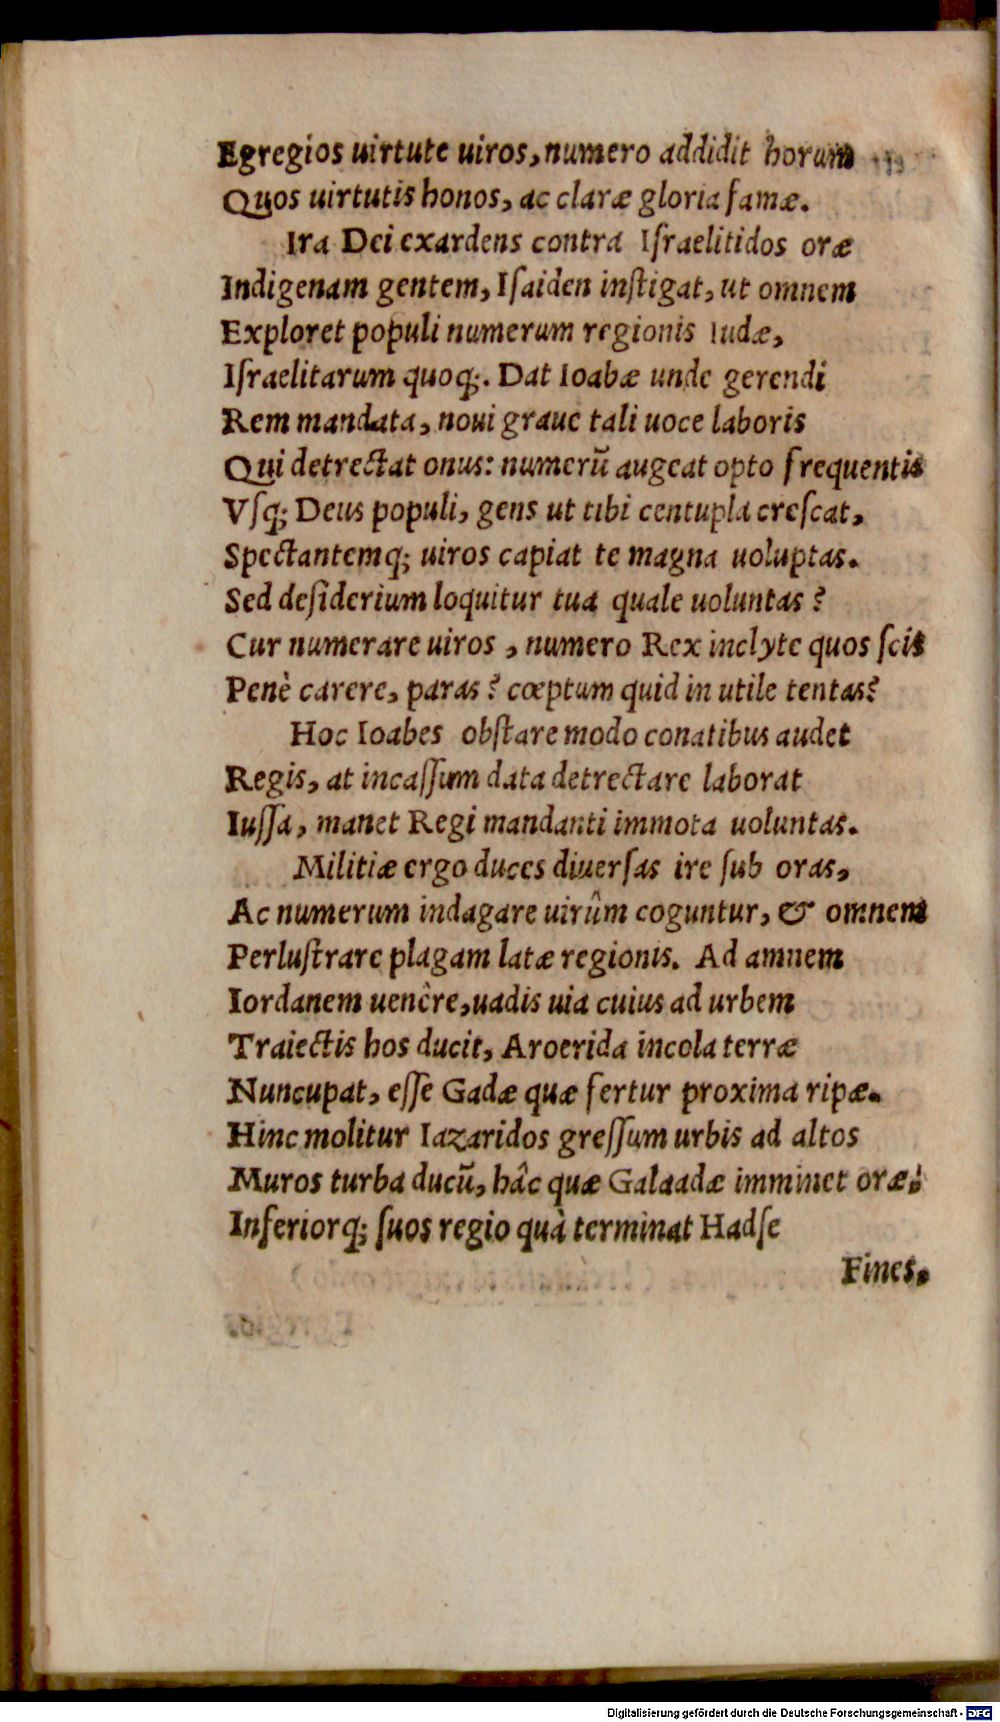 Egregios uirtute uiros, numero addidit horum
Quos uirtutis honos, ac claræ gloria famæ.
Ira Dei exardens contra Iſraelitidos oræ
Indigenam gentem, Iſaiden inſtigat, ut omnem
Exploret populi numerum regionis Iudæ,
Iſraelitarum quoq;. Dat Ioabæ unde gerendi
Rem mandata, noui graue tali uoce laboris
Qui detrectat onus: numerũ augeat opto frequentis
Vſq; Deus populi, gens ut tibi centupla creſcat,
Spectantemq; uiros capiat te magna uoluptas.
Sed deſiderium loquitur tua quale uoluntas?
Cur numerare uiros, numero Rex inclyte quos ſcis
Penè carere, paras? cœptum quid in utile tentas?
Hoc Ioabes obſtare modo conatibus audet
Regis, at incaſſum data detrectare laborat
Iuſſa, manet Regi mandanti immota uoluntas.
Militiæ ergo duces diuerſas ire ſub oras,
Ac numerum indagare uirûm coguntur, & omnem
Perluſtrare plagam latæ regionis. Ad amnem
Iordanem uenêre, uadis uia cuius ad urbem
Traiectis hos ducit, Aroerida incola terræ
Nuncupat, eſſe Gadæ quæ fertur proxima ripæ.
Hinc molitur Iazaridos greſſum urbis ad altos
Muros turba ducũ, hâc quæ Galaadæ imminet oræ:
Inferiorq; ſuos regio quà terminat Hadſe
Fines.
Digitalisierung gefördert durch die Deutsche Forschungsgemeinschaft - DFG